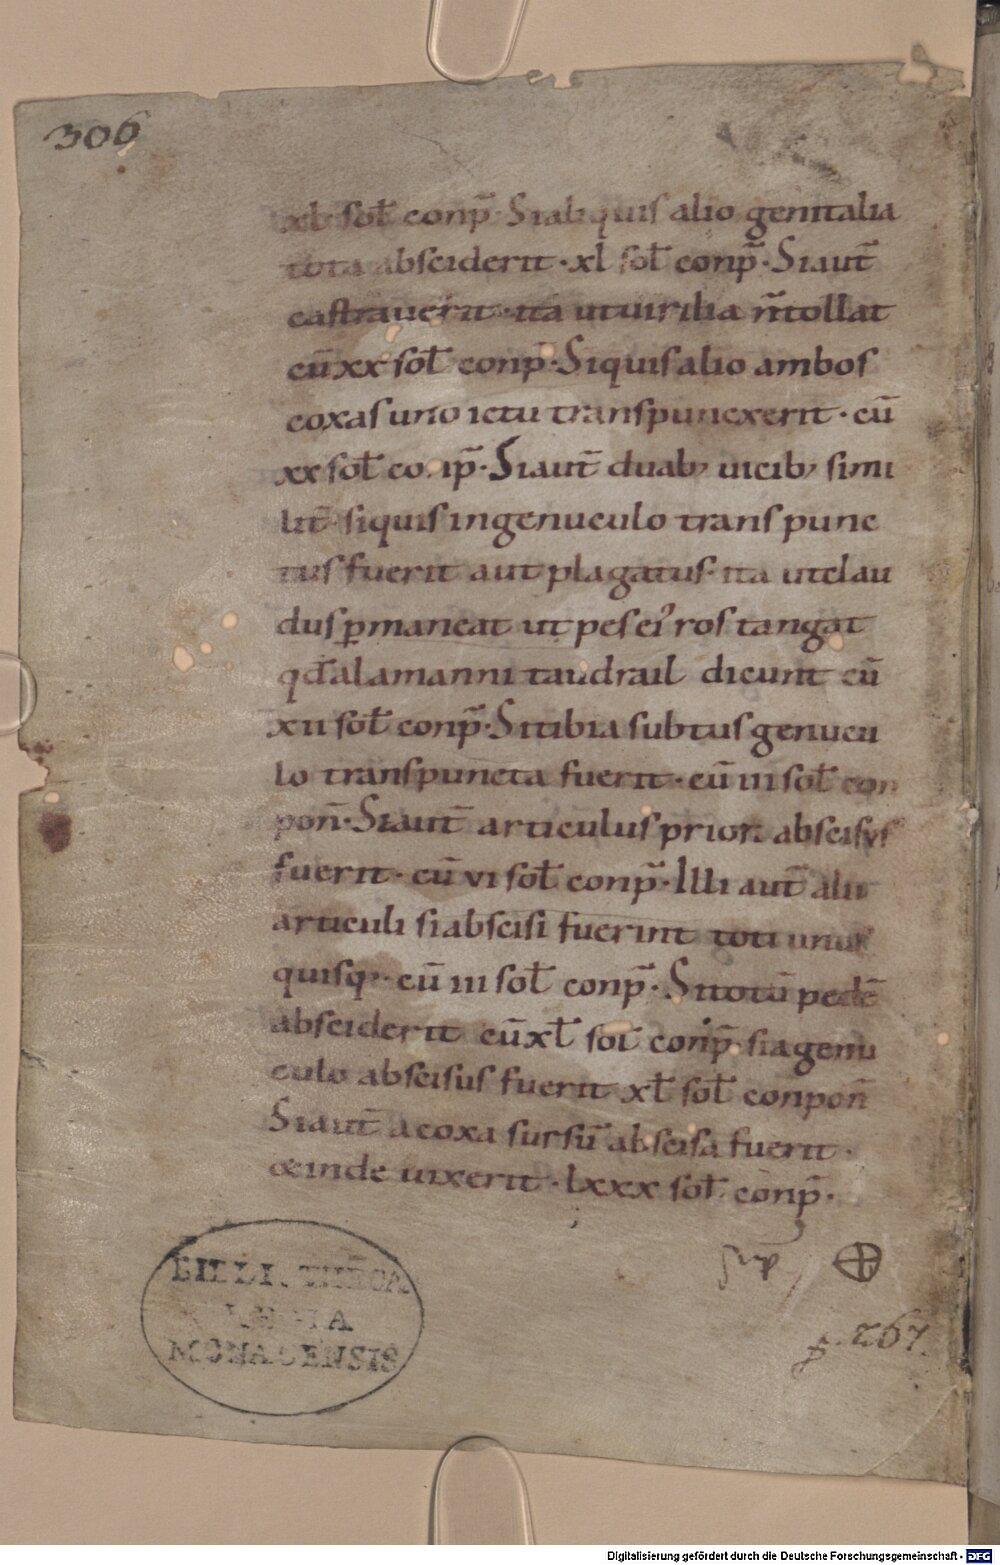 306
xl sol̄ conp̄ · Si aliquis alio genitalia
tota absciderit · xl sol̄ conp̄ · Si aut̄
castraverit · ita ut virilia n̄ tollat
cū xx sol̄ conp̄ · Si quis alio ambos
coxas uno ictu transpuncxerit · cū
xx sol̄ conp̄ · Si aut̄ duab; vicib; simi
lit̄ · si quis in genuculo transpunc
tus fuerit aut plagatus · ita ut clau
dus ꝑmaneat ut pes ei' ros tangat
qd̄ alamanni taudragil dicunt cū
xii sol̄ conp̄ · Si tibia subtus genucu
lo transpuncta fuerit · cū iii sol̄ con
pon̄ · Si aut̄ articulus prior abscisus
fuerit · cū vi sol̄ conp̄ · Illi aut̄ alii
articuli si abscisi fuerint toti unus
quisq; · cū iii sol̄ conp̄ · Si totū pedē
absciderit cū xl̄ sol̄ conp̄ · si a genu
culo abscisus fuerit xl̄ sol̄ conpon̄
Si aut̄ a coxa sursū abscisa fuerit ·
& inde vixerit · lxxx sol̄ conp̄ ·
Sup
p. 267.
BIBLIOTHECA
REGIA
MONACENSIS
Digitalisierung gefördert durch die Deutsche Forschungsgemeinschaft - DFG